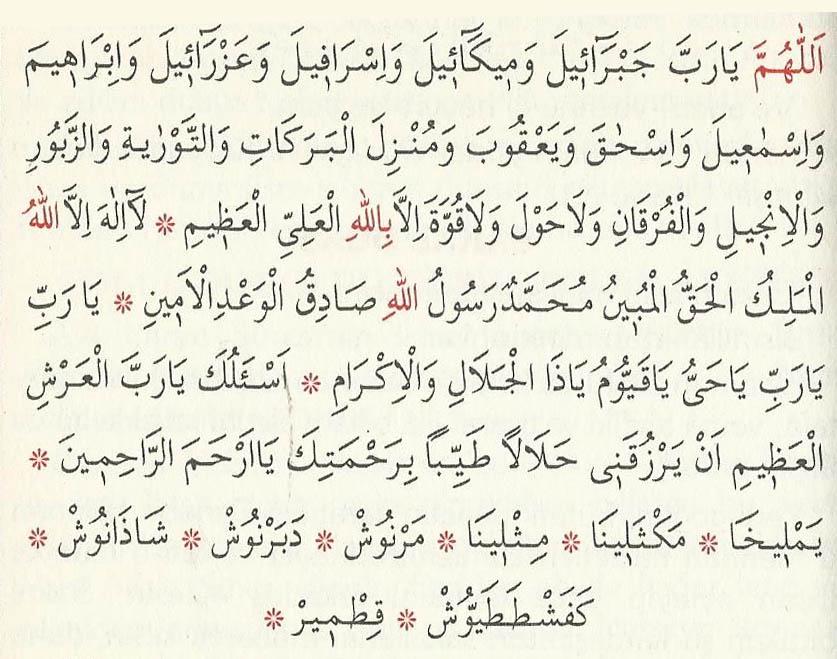 اَللّٰهُمَّ يَارَبَّ جَبْرَآئٖيلَ وَمٖيكَآئٖيلَ وَاِسْرَافٖيلَ وَعَزْرَآئٖيلَ وَاِبْرَاهٖيمَ
وَاِسْمٰعٖيلَ وَاِسْحٰقَ وَيَعْقُوبَ وَمُنْزِلَ الْبَرَكَاتِ وَالتَّوْرٰيةِ وَالزَّبُورِ
وَالْاِنْجٖيلِ وَالْفُرْقَانِ وَلَاحَوْلَ وَلَاقُوَّةَ اِلَّا بِاللّٰهِ الْعَلِىِّ الْعَظٖيمِ * لَآاِلٰهَ اِلَّا اللّٰهُ
الْمَلِكُ الْحَقُّ الْمُبٖينُ مُحَمَّدٌ رَسُولُ اللّٰهِ صَادِقُ الْوَعْدِ الْاَمٖينِ * يَا رَبِّ
يَارَبِّ يَاحَىُّ يَاقَيُّومُ يَاذَا الْجَلَالِ وَالْاِكْرَامِ * اَسْئَلُكَ يَارَبَّ الْعَرْشِ
الْعَظٖيمِ اَنْ يَرْزُقَنٖى حَلَالاً طَيِّباً بِرَحْمَتِكَ يَااَرْحَمَ الرَّاحِمٖينَ *
يَمْلٖيخَا * مَكْثَلٖينَا * مِثْلٖينَا * مَرْنُوشْ * دَبَرْنُوشْ * شَاذَنُوشْ *
كَفَشْطَطَيُّوشْ * قِطْمٖيرْ *